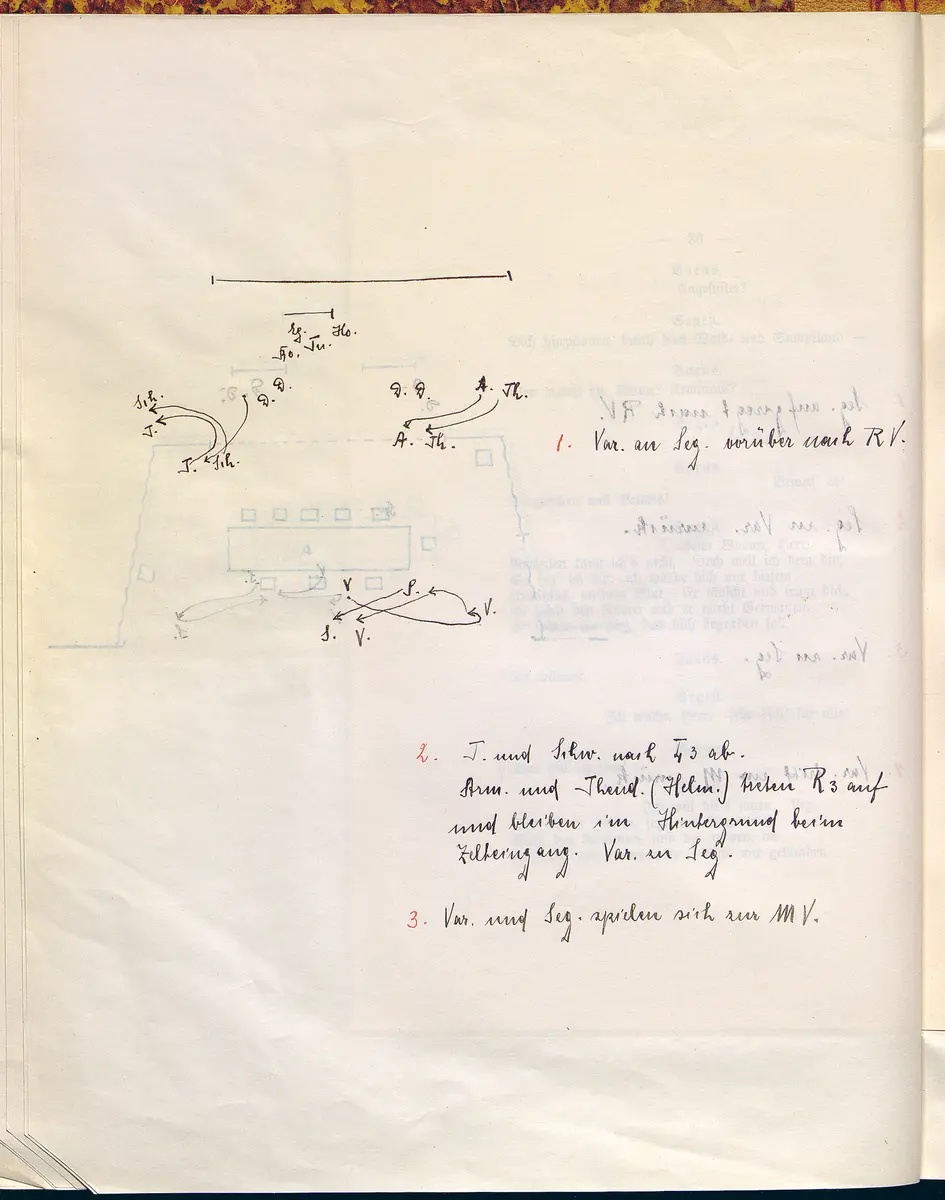 Eg. Ho.
Ko. Tu.
D. D.
D. D. A. Th.
Sch.
J.
A. Th.
J. Sch.
1. Var. an Seg. vorüber nach RV.
V S. V.
S. V.
2. J. und Schw. nach L3 ab.
Arm. und Theud. (Helm.) treten R3 auf
und bleiben im Hintergrund beim
Zelteingang. Var. zu Seg.
3. Var. und Seg. spielen sich zur MV.